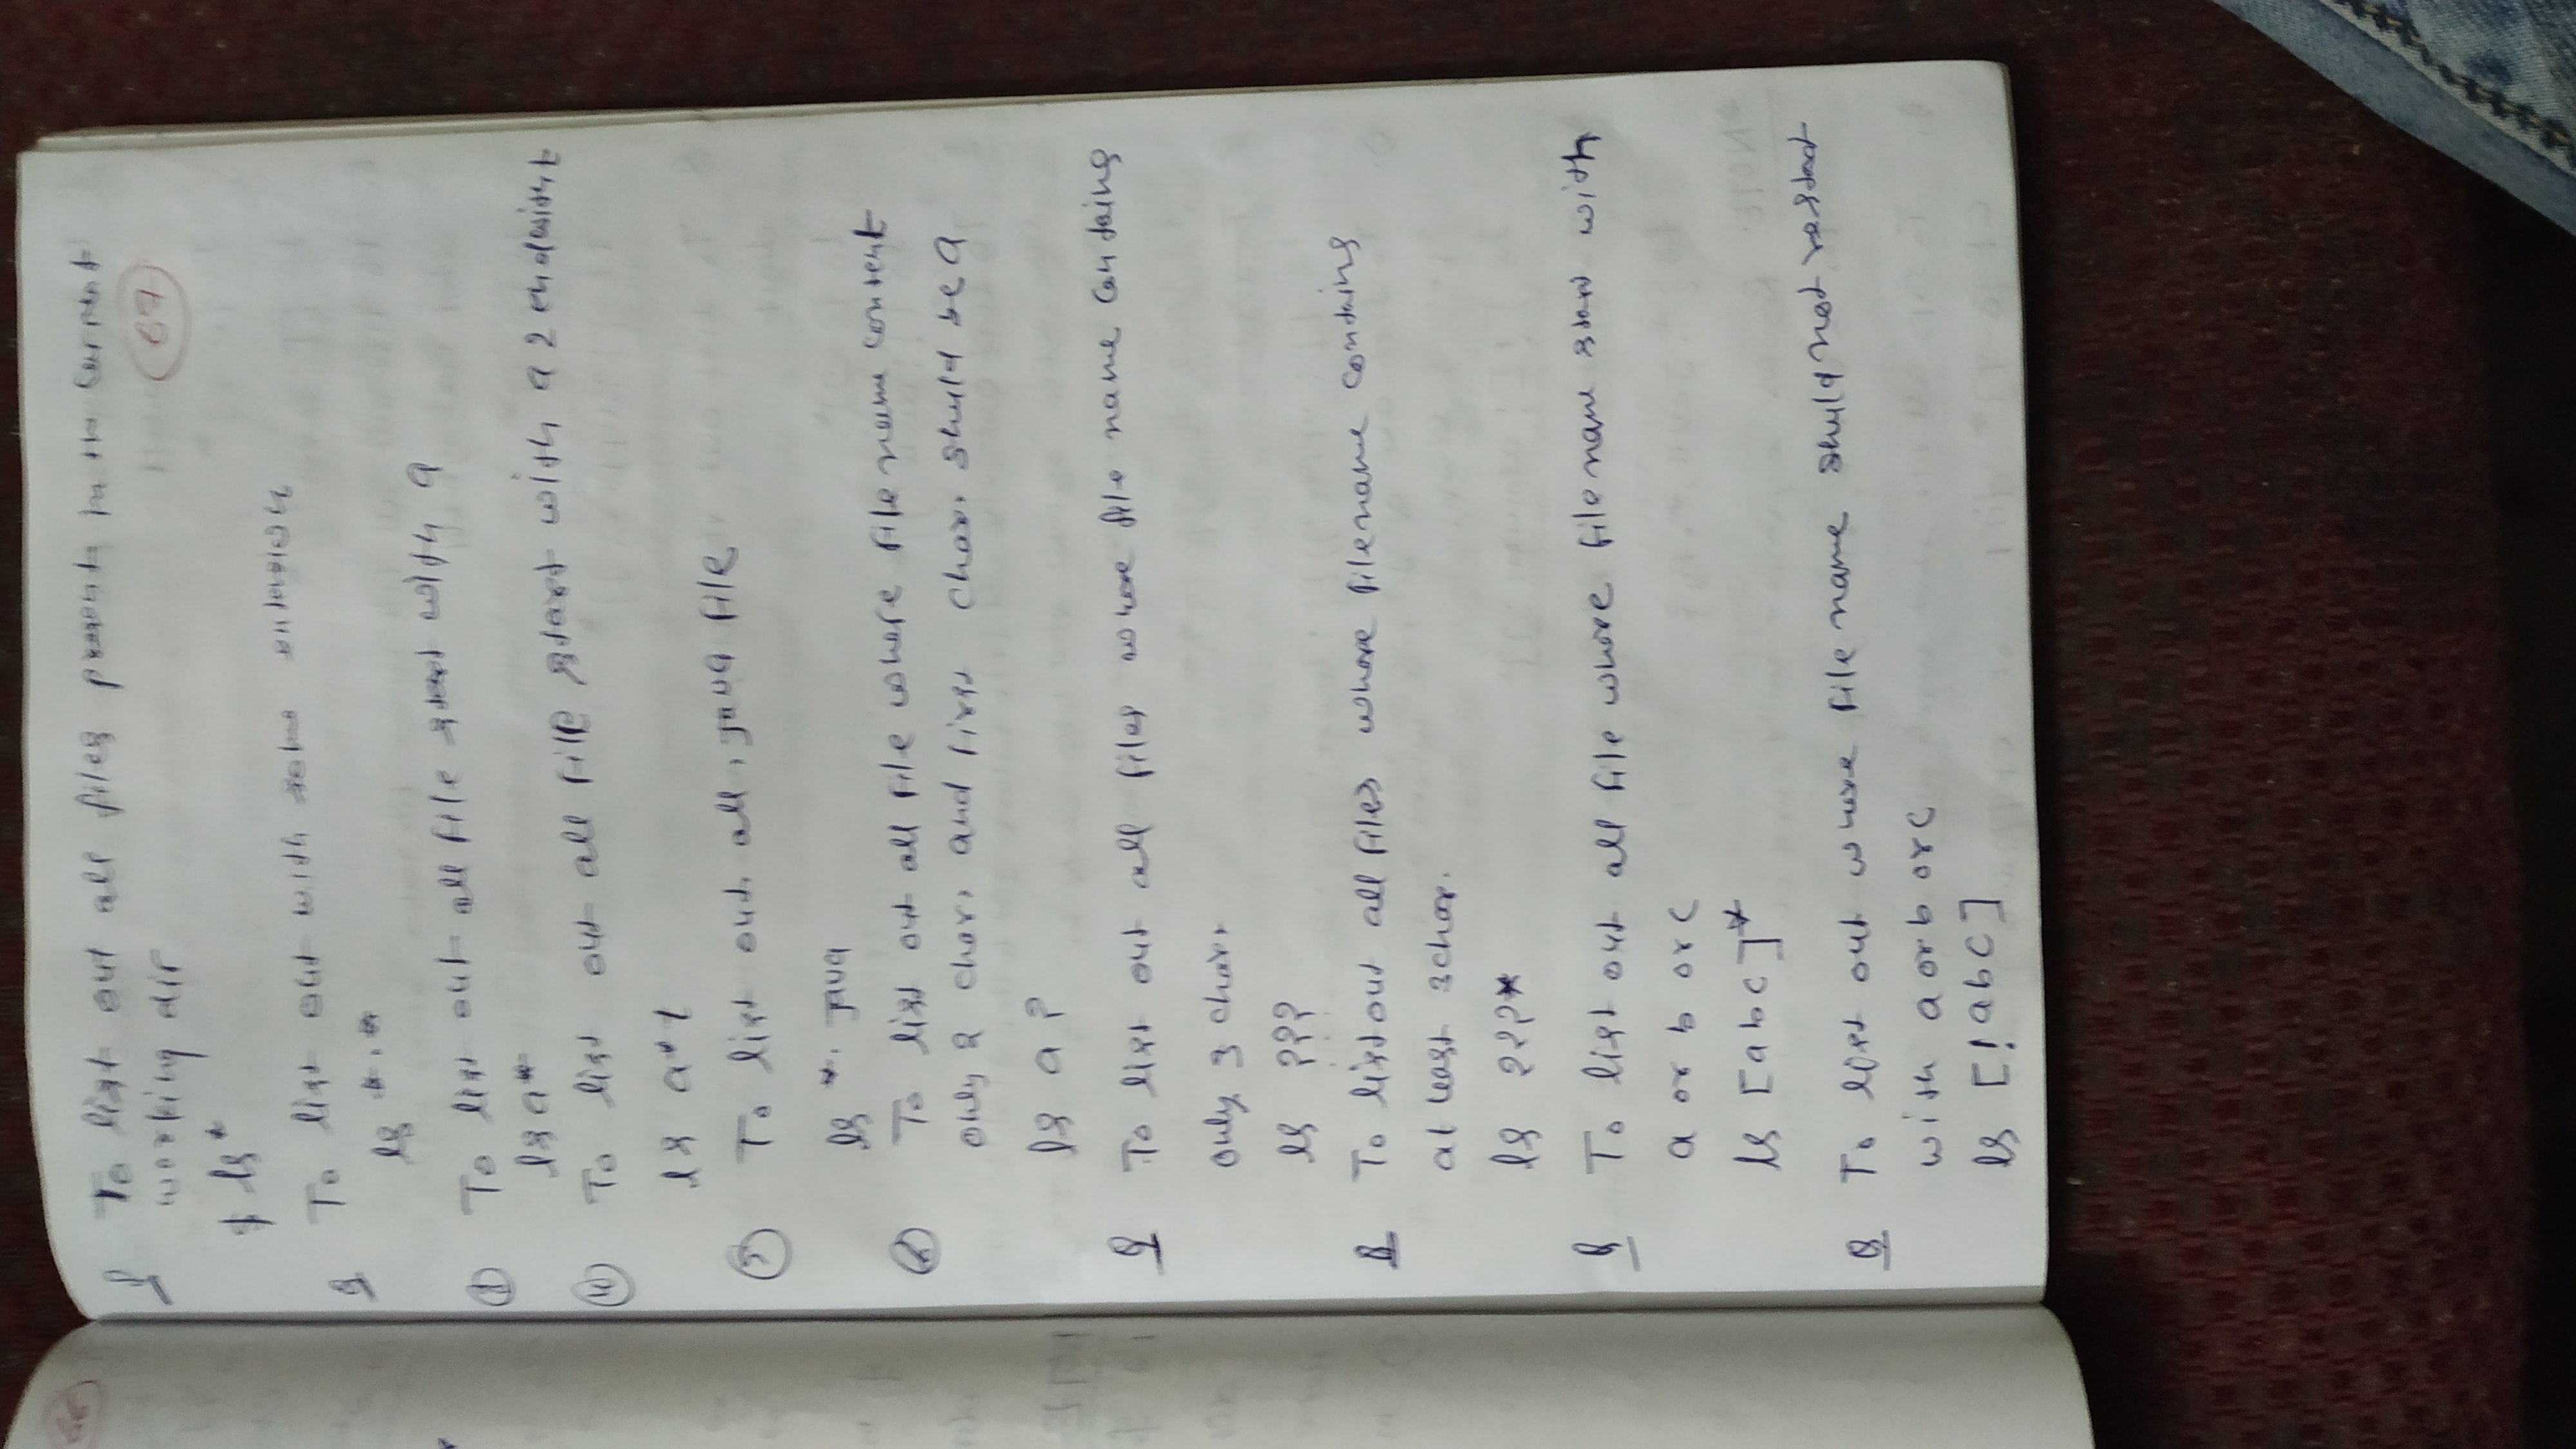 67
Q To list out all files present in the current
working dir
$ ls *
Q To list out with some extension
ls *.*
Q To list out all file start with a
ls a*
Q To list out all file start with a & end with t
ls a*t
Q To list out all .java file
ls *.java
Q To list out all file where file name content
only 2 char, and first char should be a
ls a?
Q To list out all files where file name containing
only 3 char.
ls ???
Q To list out all files where filename containing
at least 3 char.
ls ???*
Q To list out all file where file name start with
a or b or c
ls [abc]*
Q To list out where file name should not
with a or b or c
ls [!abc]